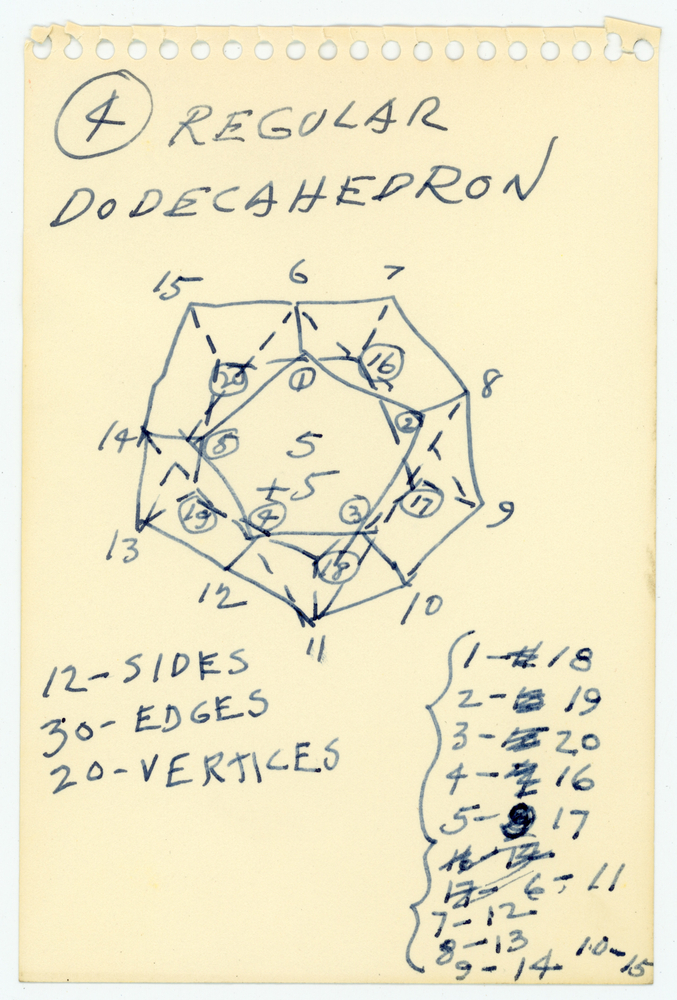 4 REGULAR
DODECAHEDRON
15 6 7
20 1 16
8
14 5 5 2
+5
19 4 3 17 9
13 18
12 10
11
12-SIDES
30-EDGES
20-VERTICES
1- 18
2- 19
3- 20
4- 16
5- 17
6-11
7-12
8-13
9-14 10-15